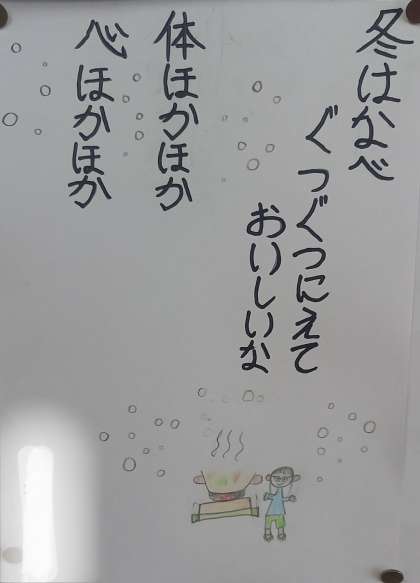 冬はなべ
ぐつぐつにえて
おいしいな
体ほかほか
心ほかほか